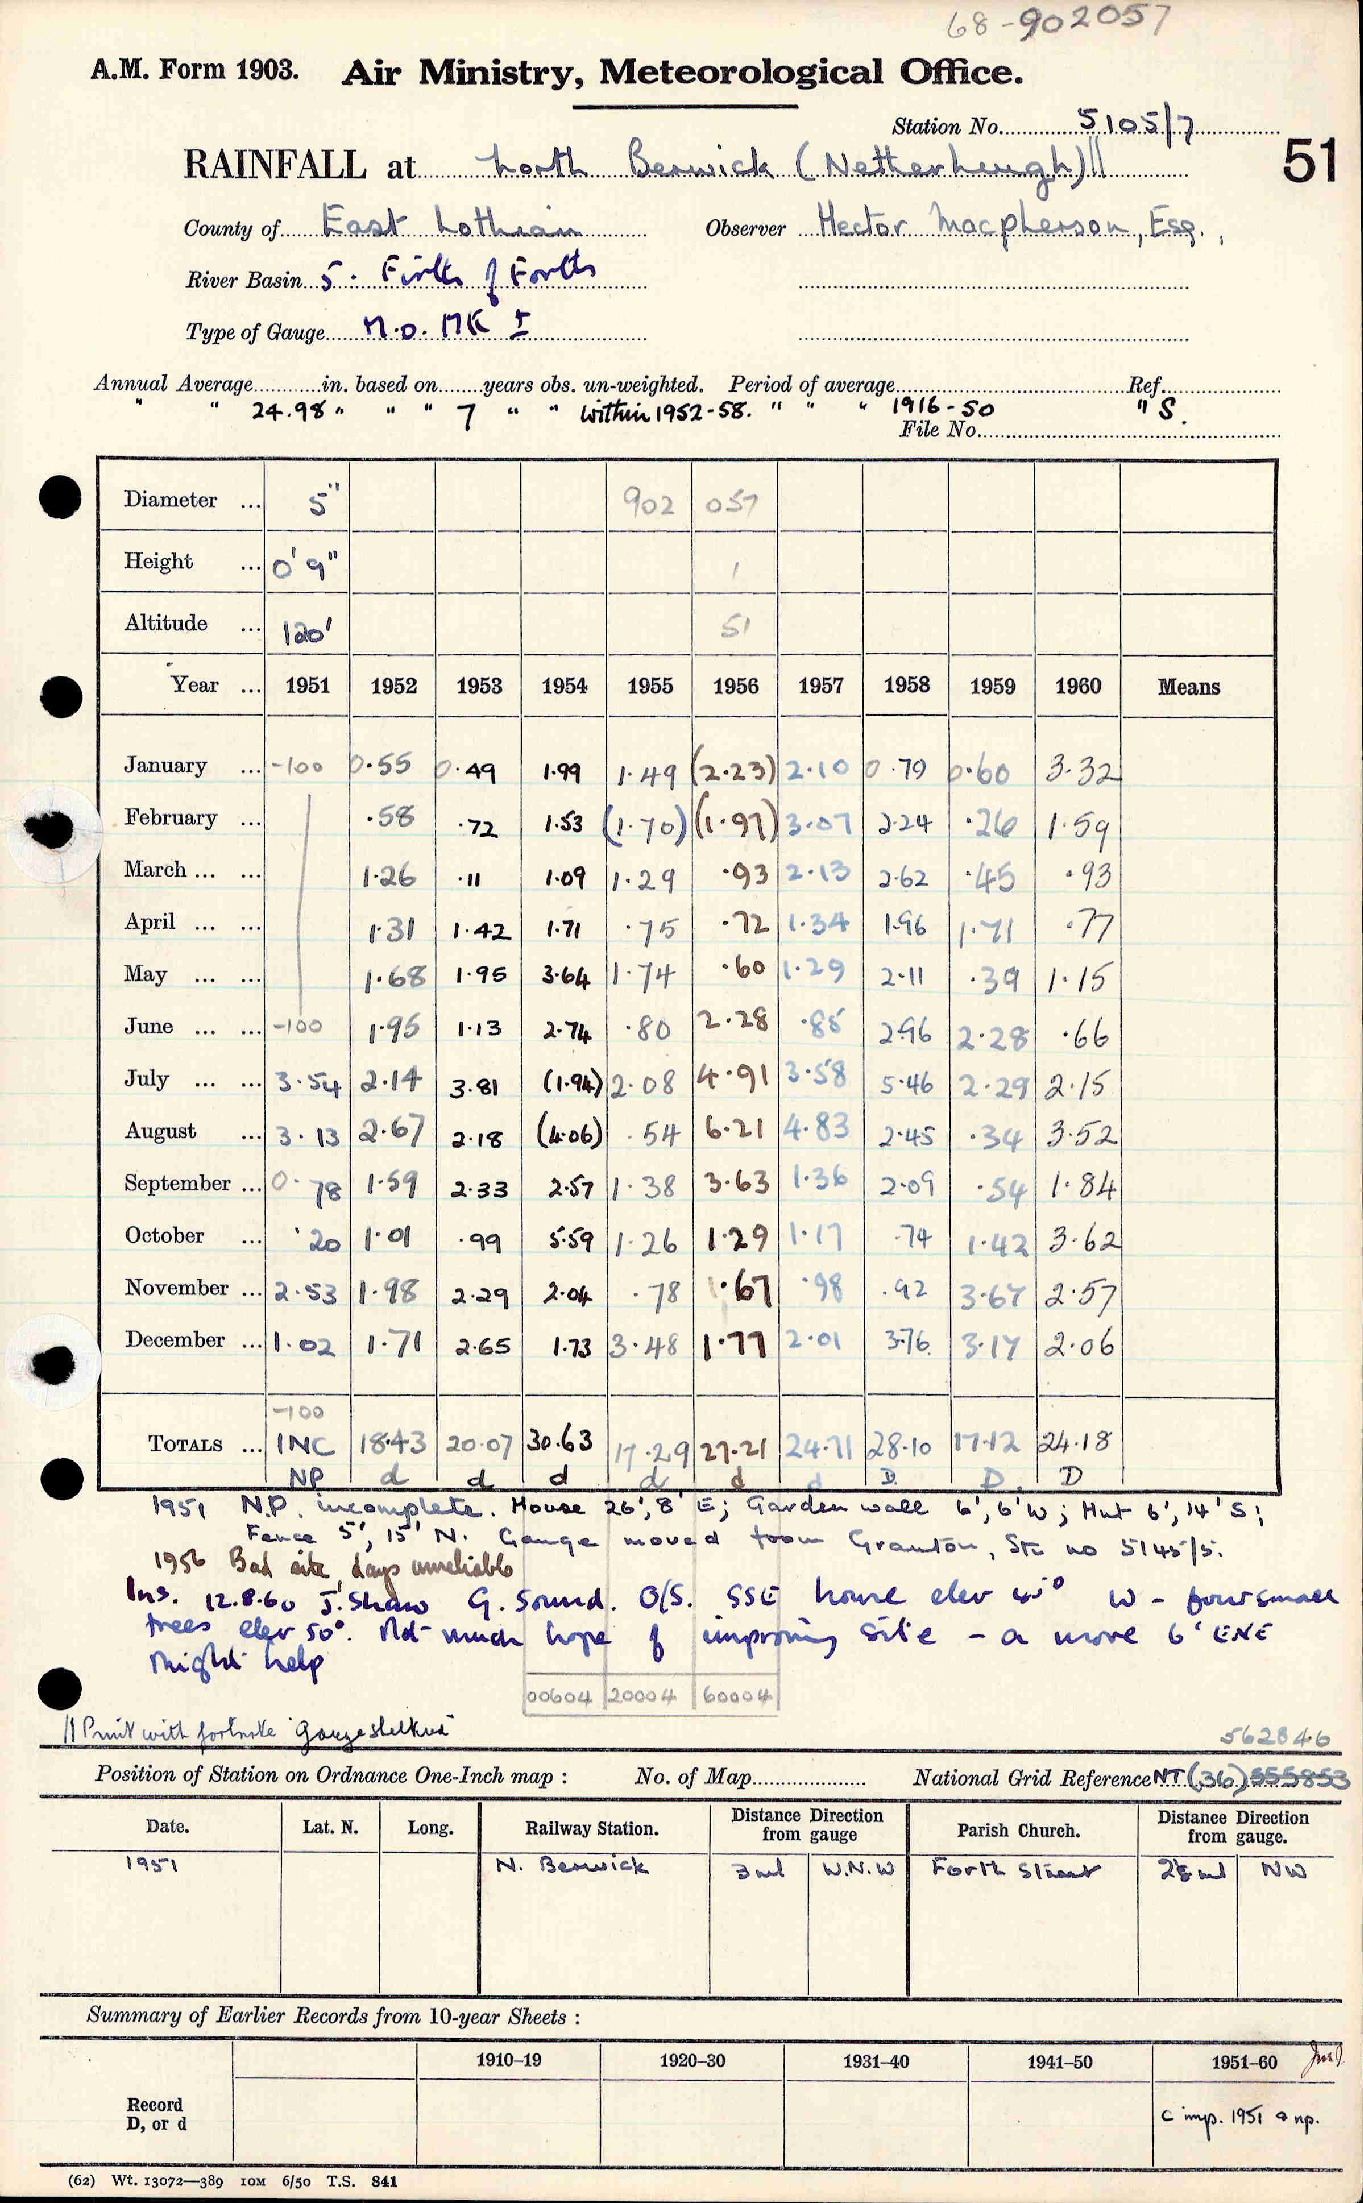 68-902057
A.M. Form 1903. Air Ministry, Meteorological Office.
Station No. 5105/7
RAINFALL at North Berwick (Netherheugh)||
51
County of East Lothian Observer Hector Macpherson, Esq.,
River Basin 5. Firth of Forth
Type of Gauge M.O. MK I
Annual Average in. based on years obs. un-weighted. Period of average Ref.
" " 24.98 " " " 7 " " within 1952-58. " " " 1916-50 " S.
File No.
Diameter ... 5" 902 057
Height ... 0' 9" 1
Altitude ... 120' 51
Year ... 1951 1952 1953 1954 1955 1956 1957 1958 1959 1960 Means
January ... -100 0.55 0.49 1.99 1.49 (2.23) 2.10 0.79 0.60 3.32
February ... .58 .72 1.53 (1.70) (1.97) 3.07 2.24 .26 1.59
March ... ... 1.26 .11 1.09 1.29 .93 2.13 2.62 .45 .93
April ... ... 1.31 1.42 1.71 .75 .72 1.34 1.96 1.71 .77
May ... ... 1.68 1.95 3.64 1.74 .60 1.29 2.11 .39 1.15
June ... ... -100 1.95 1.13 2.74 .80 2.28 .85 2.96 2.28 .66
July ... ... 3.54 2.14 3.81 (1.94) 2.08 4.91 3.58 5.46 2.29 2.15
August ... 3.13 2.67 2.18 (4.06) .54 6.21 4.83 2.45 .34 3.52
September ... 0.78 1.59 2.33 2.57 1.38 3.63 1.36 2.09 .54 1.84
October ... .20 1.01 .99 5.59 1.26 1.29 1.17 .74 1.42 3.62
November ... 2.53 1.98 2.29 2.04 .78 1.67 .98 .92 3.67 2.57
December ... 1.02 1.71 2.65 1.73 3.48 1.77 2.01 3.76 3.17 2.06
-100
TOTALS ... INC 18.43 20.07 30.63 17.29 27.21 24.71 28.10 17.12 24.18
NP d d d d d d D D D
1951 N.P. incomplete. House 26', 8' E; Garden wall 6', 6' W; Hut 6', 14' S;
Fence 5', 15' N. Gauge moved from Granton, Stn no 5145/5.
1956 Bad site, days unreliable
Ins. 12.8.60 J. Shaw G. Sound. O/S. SSE house elev 45° W - four small
trees elev 50°. Not much hope of improving site - a move 6' ENE
might help
00604 20004 60004
|| Print with footnote 'Gauge sheltered'
562846
Position of Station on Ordnance One-Inch map : No. of Map National Grid Reference NT (36) 555853
Date. Lat. N. Long. Railway Station. Distance Direction from gauge Parish Church. Distance Direction from gauge.
1951 N. Berwick 3ml W.N.W Forth Street ml NW
Summary of Earlier Records from 10-year Sheets :
1910–19 1920–30 1931–40 1941–50 1951–60
Record
D, or d
c imp. 1951 a np.
(62) Wt. 13072—389 10M 6/50 T.S. 841